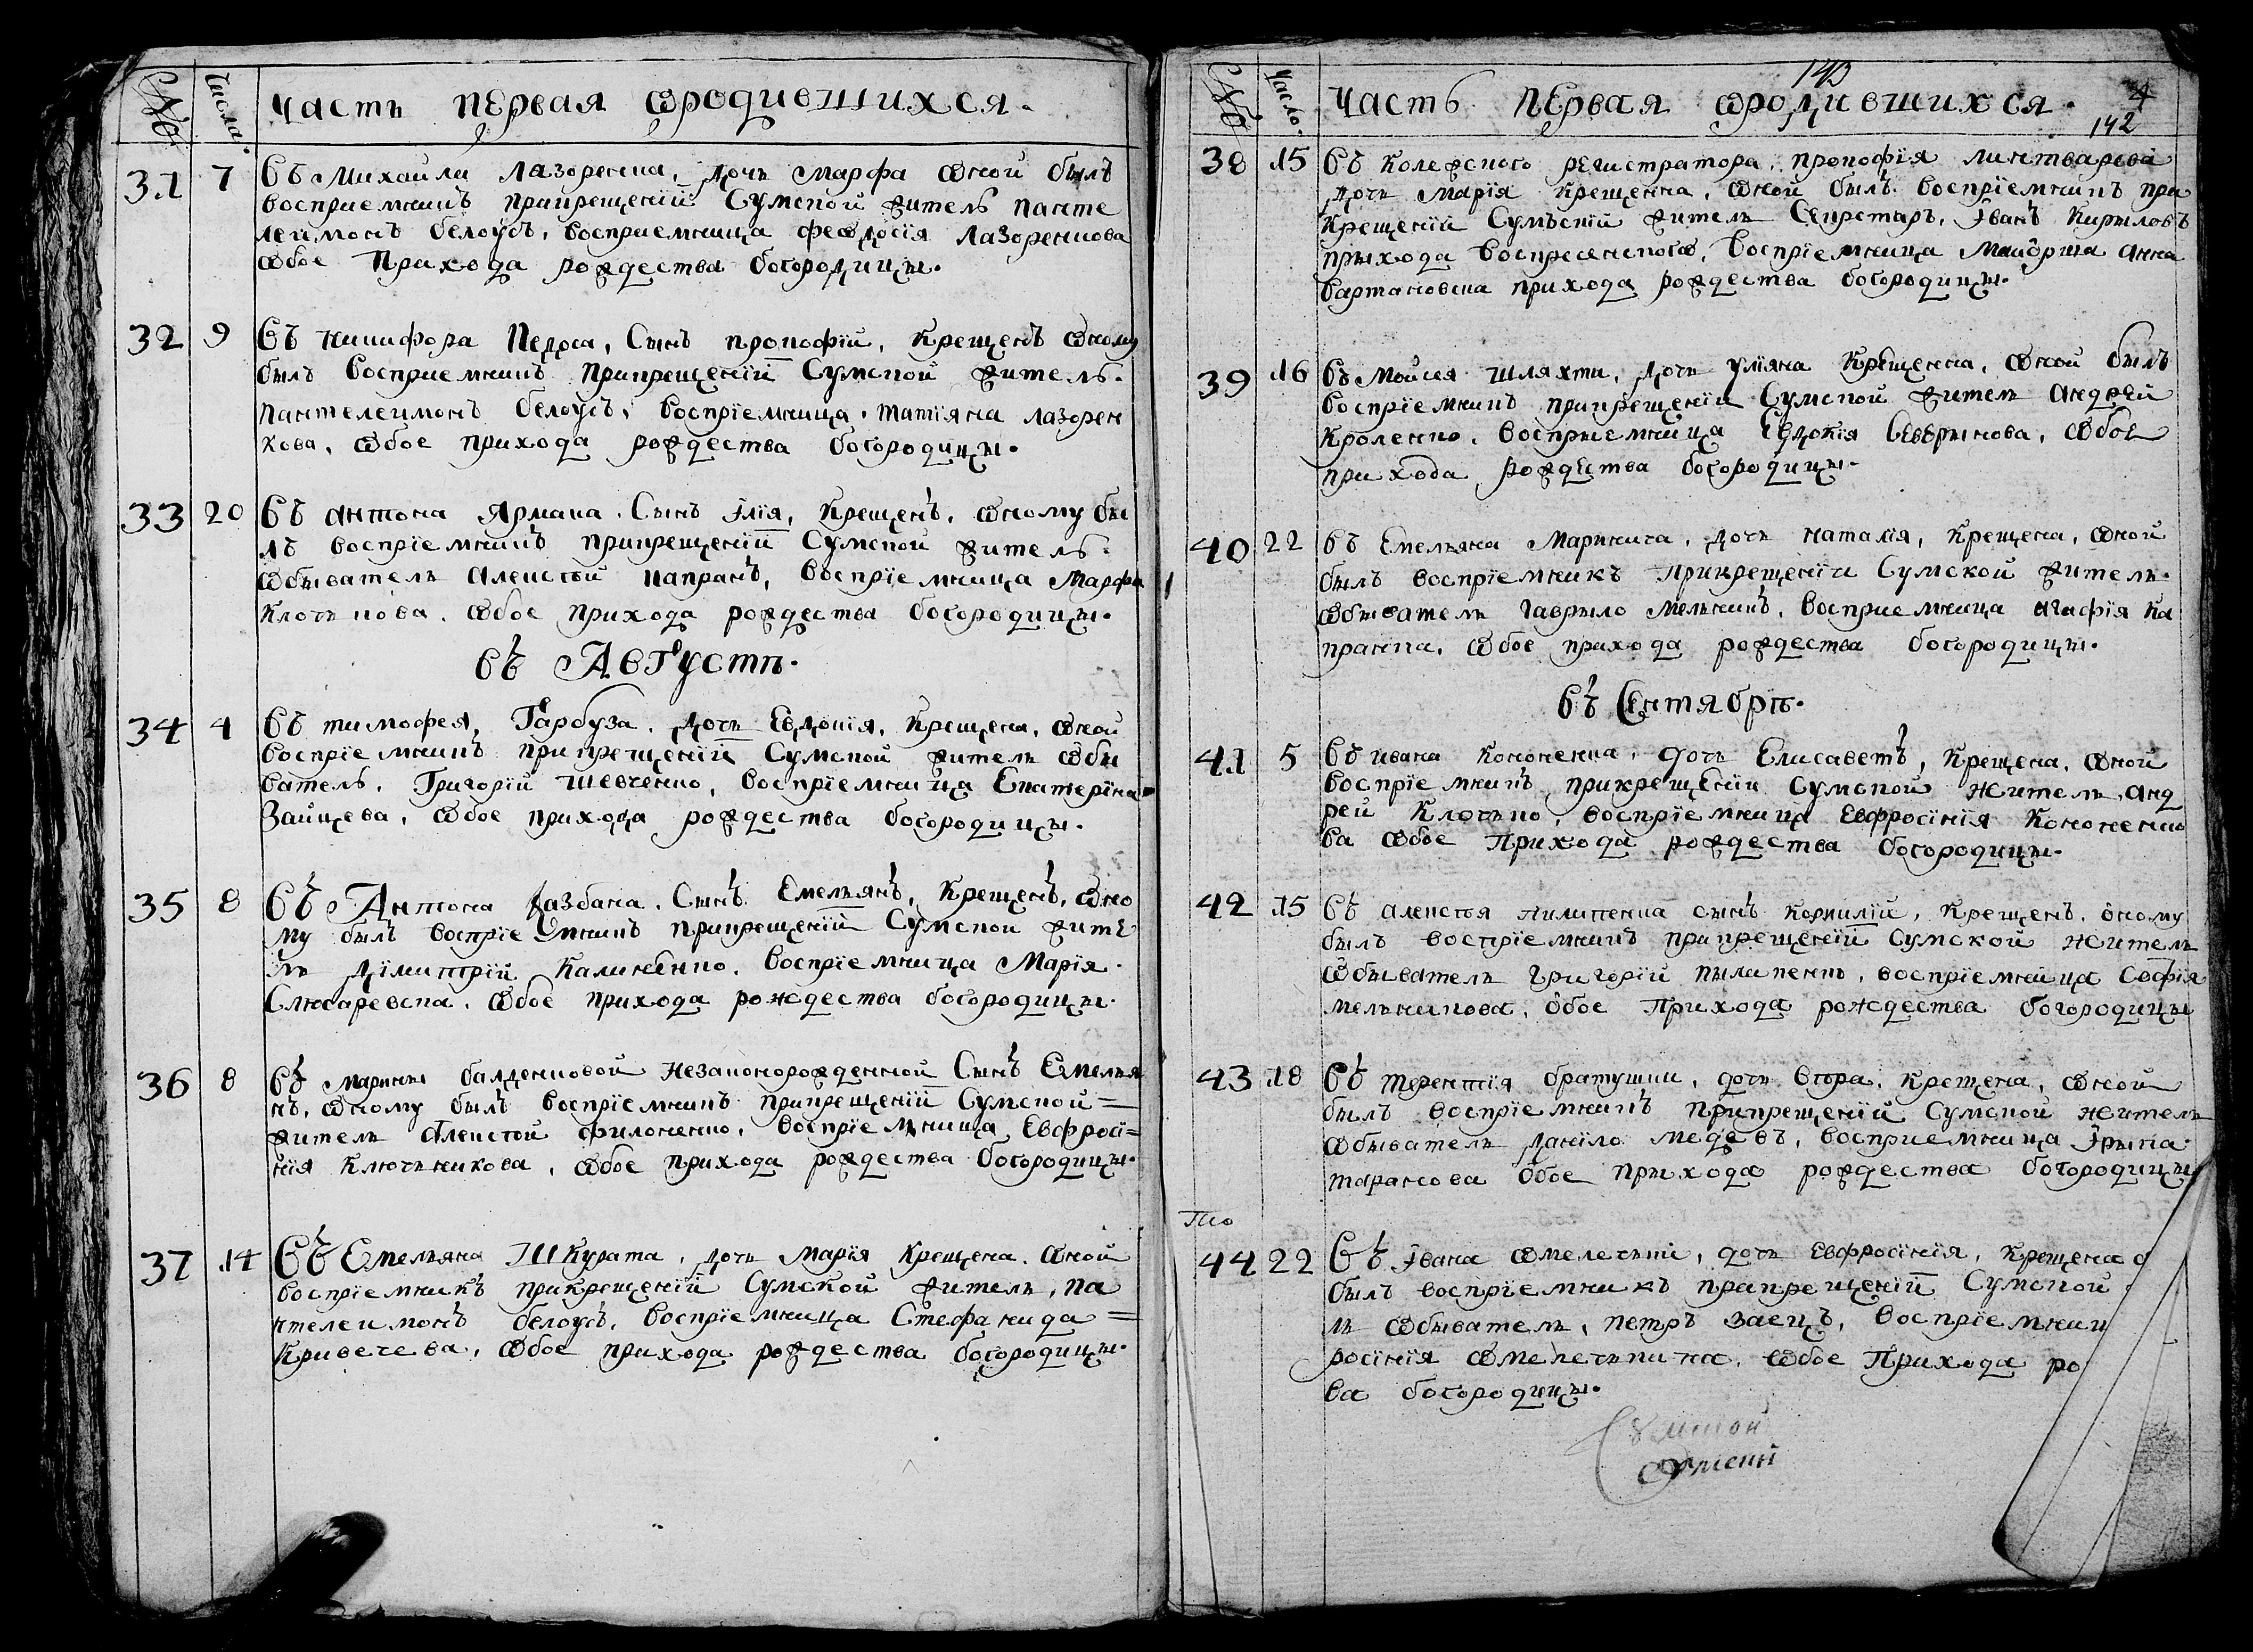 № Числа. Часть первая ѡродившихся.
31 7 Въ Михаила Лазоренка, дочь Марфа ѡной былъ
восприемникъ прикрещенїй Сумской житель панте
леимонъ белоусъ, восприемница феѡдосїя Лазоренкова
ѡбое Прихода рождества богородицы.
32 9 Въ никифора Педоса, Сынъ прокофїй, крещенъ ѡному
былъ восприемникъ прикрещенїй Сумской житель.
пантелеимонъ белоусъ, воспрїемница татїяна лазорен
кова, ѡбое прихода рождества богородицы.
33 20 Въ антона Ярмака. Сынъ Iлїя, Крещенъ, ѡному бы
лъ воспрїемникъ прикрещенїй Сумской житель.
ѡбыватель алексѣй капранъ, воспрїемница Марфа
Клочькова. ѡбое прихода рождества богородицы.
въ Августѣ.
34 4 Въ тимофея Гарбуза. Дочь Евдокїя, Крещена, ѡной
воспрїемникъ прикрещенїй Сумской житель ѡбы
ватель. Григорїй шевченко, воспрїемница Екатерїна
Зайцева, ѡбое прихода рождества богородицы.
35 8 Въ Антона Казбана. Сынъ Емельянъ, Крещенъ, ѡно
му былъ воспрїемникъ прикрещенїй Сумской жите
ль Дїмитрїй Калиненко, воспрїемница Марїя.
Слюсаревска, ѡбое прихода рождества богородицы.
36 8 Въ марины балденковой незаконорожденной Сынъ Емелья
нъ, ѡному былъ воспрїемникъ прикрещенїй Сумской
житель Алексѣй филоненко, воспрїемница Евфросї=
нїя ключьникова, ѡбое прихода рождества богородицы.
37 14 Въ Емельяна Шкурата, дочь Марїя крещена. ѡной
воспрїемникъ прикрещенїй Сумской житель, па
нтелеимонъ белоусъ, воспрїемница Стефанида =
Кривечева, ѡбое прихода рождества богородицы.
143
4
142
№ Число. Часть Первая ѡродившихся.
38 15 Въ колежского регистратора, прокофїя линтварева
дочь Марїя крещенна, ѡной былъ воспрїемникъ при
крещенїй Сумъскїй житель Секретарь, Iванъ Кириловъ
прихода воскресенского, воспрїемница Маиорша Анна
Вартановска прихода рождества богородицы.
39 16 Въ Мойсея шляхти, дочь улїяна Крещенна, ѡной былъ
воспрїемникъ прикрещенїи Сумской житель андрей
Кроленко. восприемница Евдокїя Северинова, ѡбое
прихода рождества богородицы.
40 22 Въ Емельяна Маринича, дочь наталїя, Крещена, ѡной
былъ воспрїемникъ прикрещенїи Сумской житель.
ѡбыватель гаврыло мельникъ. восприемница агафїя ка
пранка, ѡбое прихода рождества богородицы.
въ Сентябрѣ.
41 5 Въ ивана Кононенка, дочь Елисаветъ, Крещена, ѡной
воспрїемникъ прикрещенїи Сумской житель, анд
рей Клочько, воспрїемница Евфросїнїя Кононенко
ва ѡбое Прихода рождества богородицы.
42 15 Въ алексѣя пилипенка сынъ корнилїй, крещенъ, ѡному
былъ воспрїемникъ прикрещенїй Сумской житель
ѡбыватель григорїй пылипенко, воспрїемница Софїя
мельникова, ѡбое Прихода рождества богородицы
43 18 Въ терентїя братушки, дочь вѣра, Крещена, ѡной
былъ воспрїемникъ прикрещенїй Сумской житель
ѡбыватель данїло медевъ, восприемница Iрына
таранова ѡбое прихода рождества богородицы
44 22 Въ Iвана ѡмелечьки, дочь евфросїнїя, Крещена
былъ воспрїемникъ прикрещенїй Сумской
ль ѡбыватель, петръ заецъ, воспрїемни
росїнїя ѡмелечькина, ѡбое Прихода ро
ва богородицы.